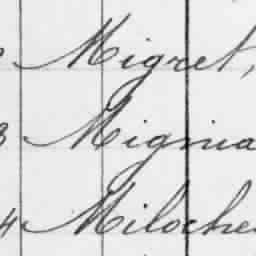 Migret,
3 Mignia
4 Miloche